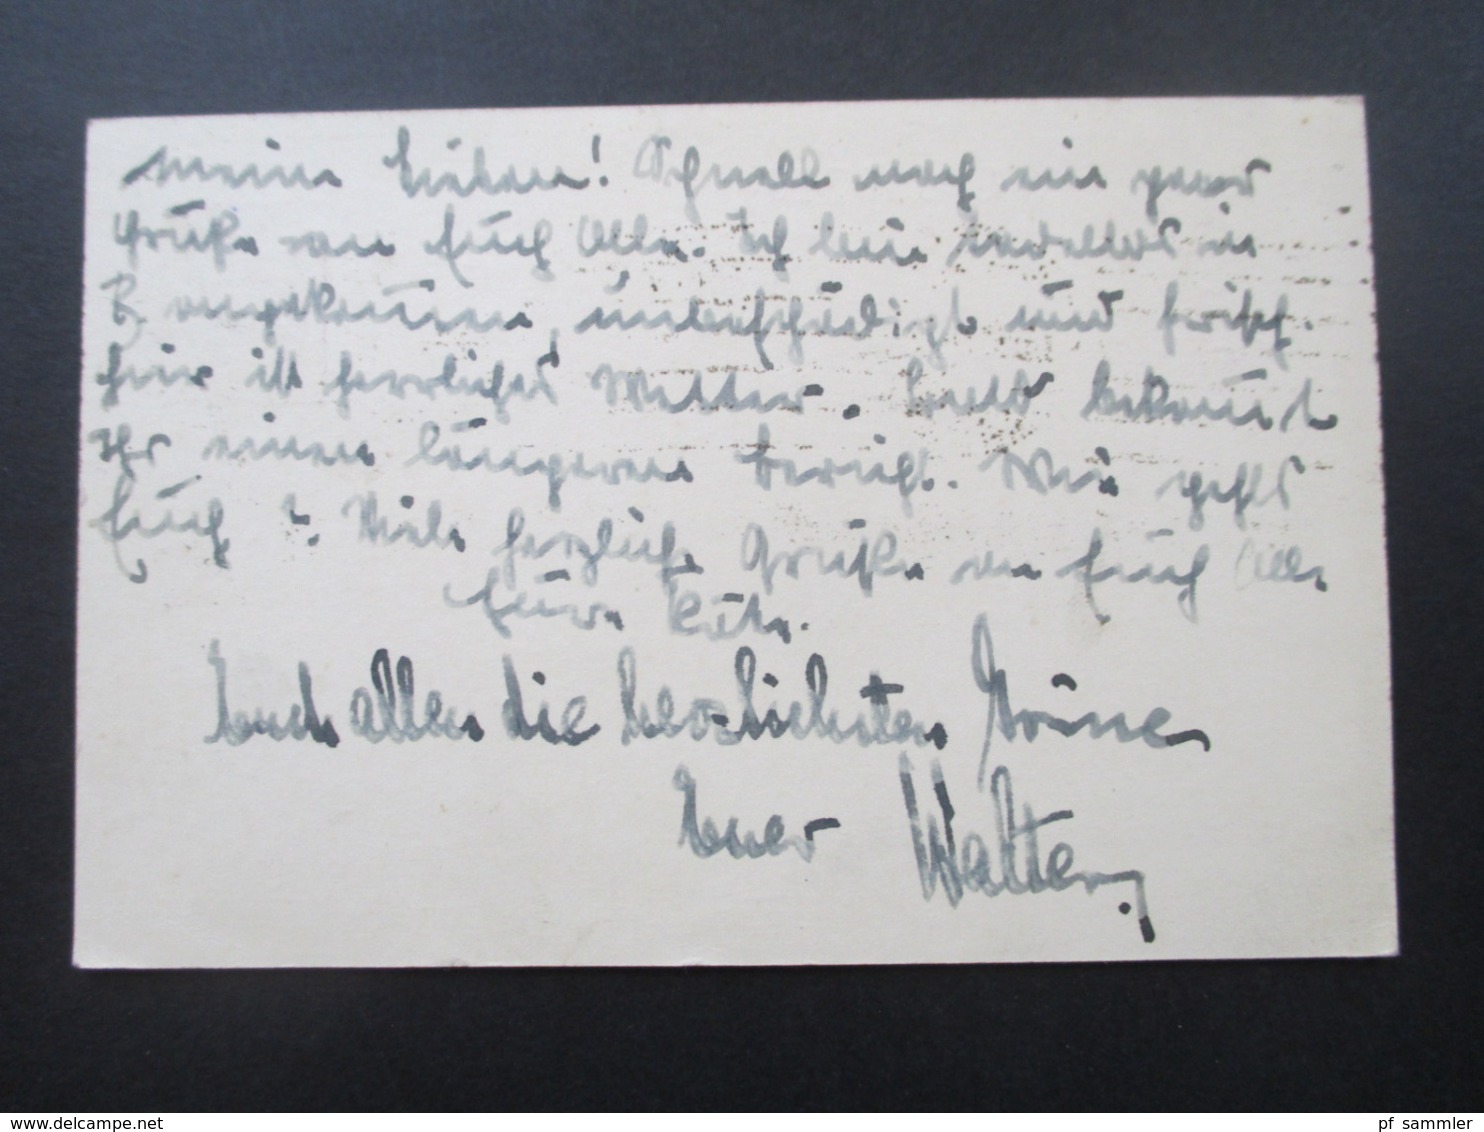 Meine Lieben! Schnell noch ein paar
Grüße an Euch Alle. Ich bin tadellos in
B angekommen, unbeschädigt und frisch.
Hier ist herrliches Wetter. Bald bekommt
Ihr einen längeren Bericht. Wie gehts
Euch? Viele herzliche Grüße an Euch Alle
Eure Käte.
Euch allen die herzlichsten Grüße
Euer Walter.
www.delcampe.net
pf_sammler